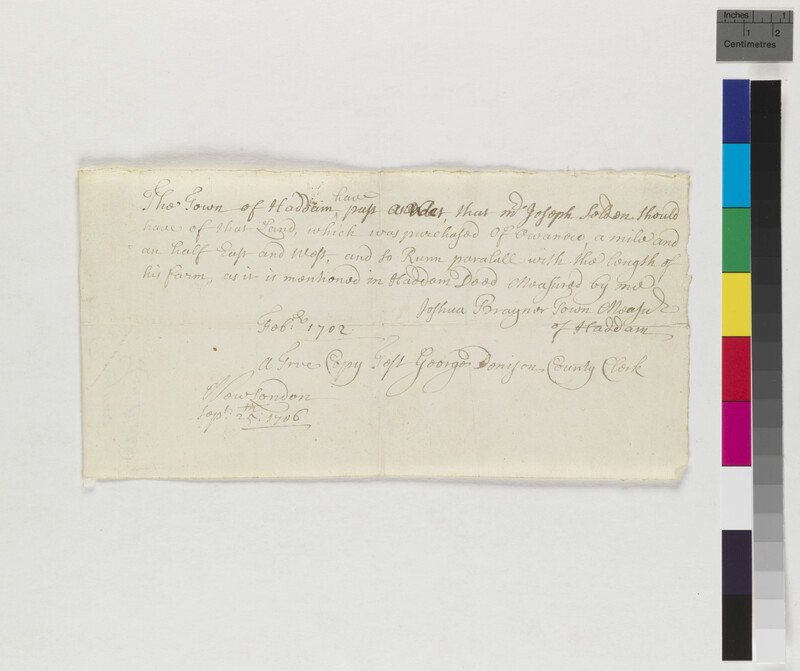 Inches 1
1 2
Centimetres
have
The Town of Haddam, past a Vote, that mr Joseph Selden should
have of that Land, which was purchased of Owaneco, a mile and
an half East and West, and to Runn paralell with the Length of
his farm, as it is mentioned in Haddam Deed Measured by me
Joshua Brayner Town Measurr
of Haddam
Febr: 1702
A True Copy Test George Denison County Clerk
New London
Sept: 25th: 1706